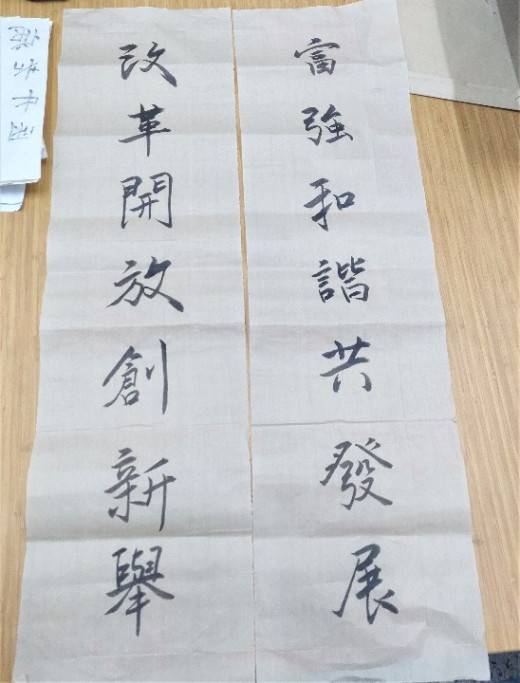 富強和諧共發展
改革開放創新舉